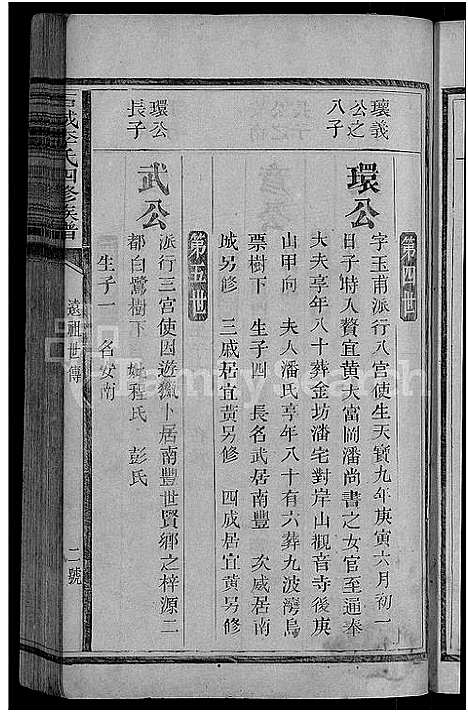 第四世
瓌義
公之
八子
環公
字玉甫派行八宮使生天寶九年庚寅六月初一
日子時入贅宜黄大富岡潘尚書之女官至通奉
大夫享年八十葬金坊潘宅對岸山觀音寺後庚
山甲向 夫人潘氏享年八十有六葬九波灣烏
票樹下 生子四 長名武居南豐 次威居南
城另修 三戚居宜黄另修 四成居宜黄另修
第五世
環公
長子
武公
派行三宮使因遊獵卜居南豐世賢鄉之梓源二
都白鷺樹下 妣程氏 彭氏
生子一 名安南
城李氏四修族譜
遠祖世傳
二號
FamilySearch